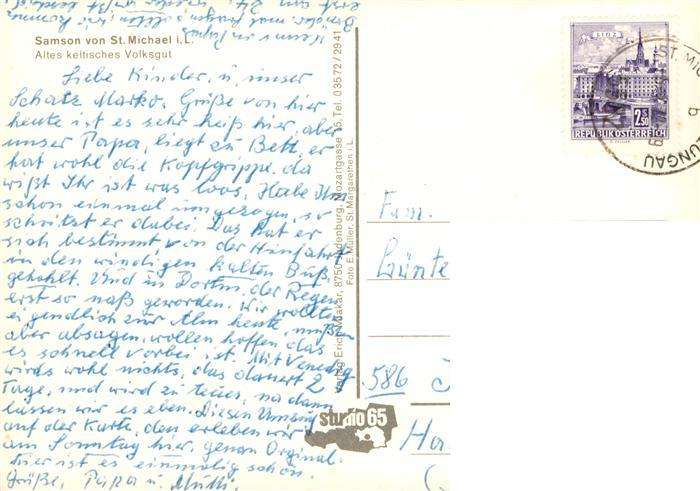 Samson von St. Michael i.L.
Altes keltisches Volksgut
Liebe Kinder, u. unser
Schatz Marko. Grüße von hier
heute ist es sehr heiß hier, aber
unser Papa, liegt zu Bett, er
hat wohl die Kopfgrippe. da
wißt Ihr ist was loos. Habe Ihm
schon einmal umgezogen, so
schwitzt er dabei. Das hat er
sich bestimmt von der Hinfahrt
in den windigen kalten Buß,
gehohlt. Und in Dortm. der Regen
erst so naß geworden. Wir wollten
eigendlich zur Alm heute, mußten
aber absagen, wollen hoffen das
es schnell vorbei ist. Mit Venedig
wirds wohl nichts, das dauert 2
Tage, und wird zu teuer, na dann
lassen wir es eben. Diesen Umzug
auf der Karte, den erleben wir
am Sonntag hier, genau Orginal.
Hier ist es einmalig schön.
Grüße, Papa u. Mutti.
Verlag Erich Mlakar, 8750 Judenburg, Mozartgasse 15, Tel. 03572/2941
Foto E. Müller, St. Margarethen i. L.
studio 65
Fam.
Günte
586
LINZ
2.50
REPUBLIK ÖSTERREICH
ST. MI
LUNGAU